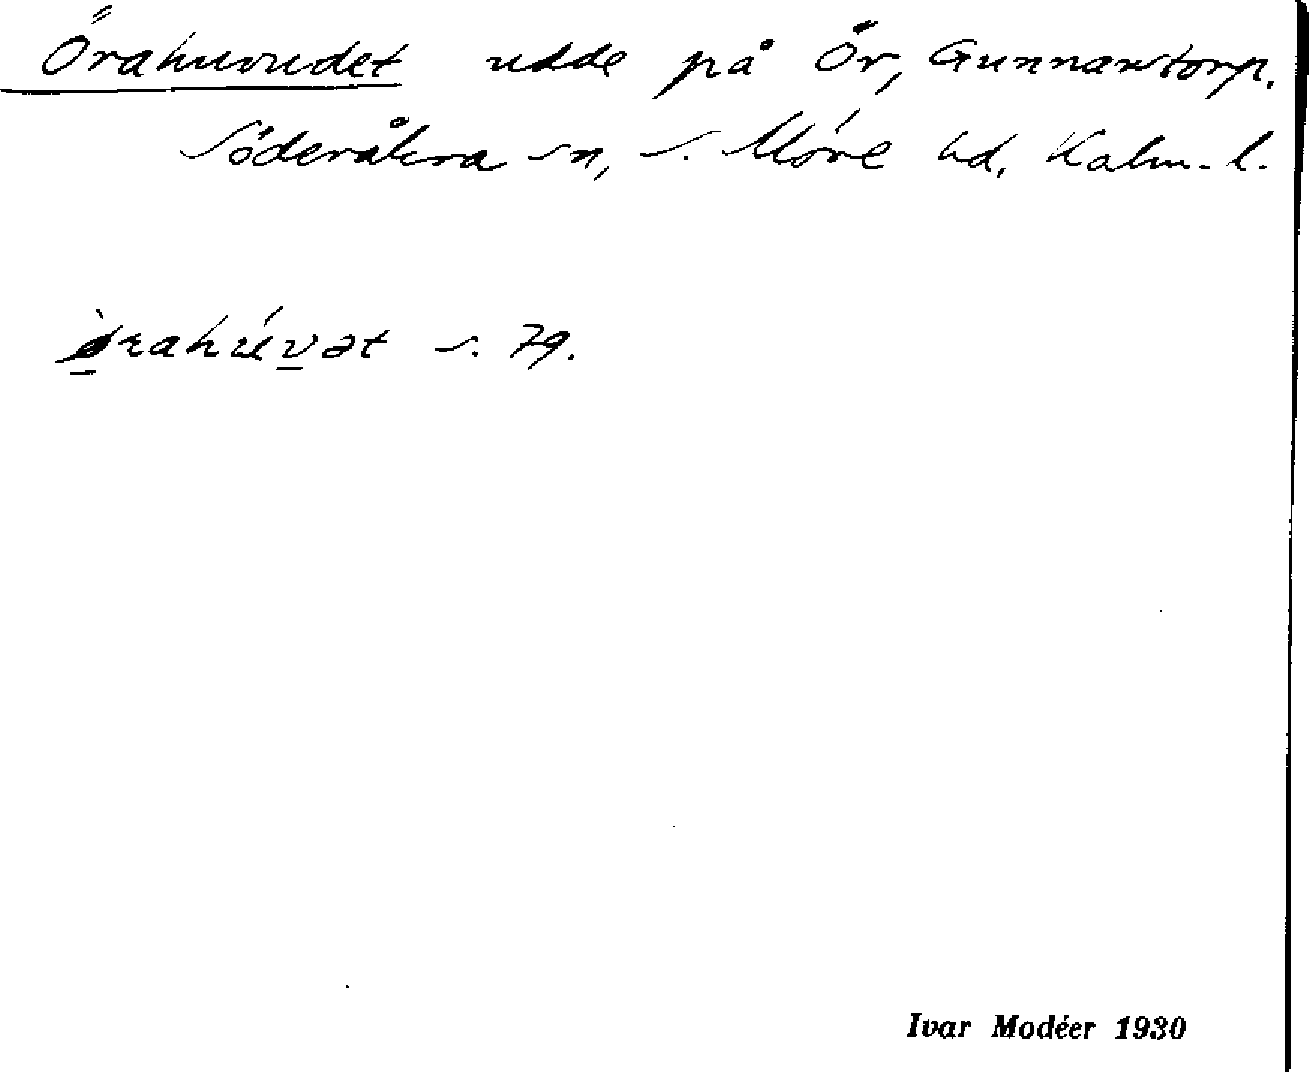 Örahuvudet udde på Ör, Gunnarstorp.
Söderåkra sn, s. Möre hd, Kalm. l.
s. 79.
Ivar Modéer 1930